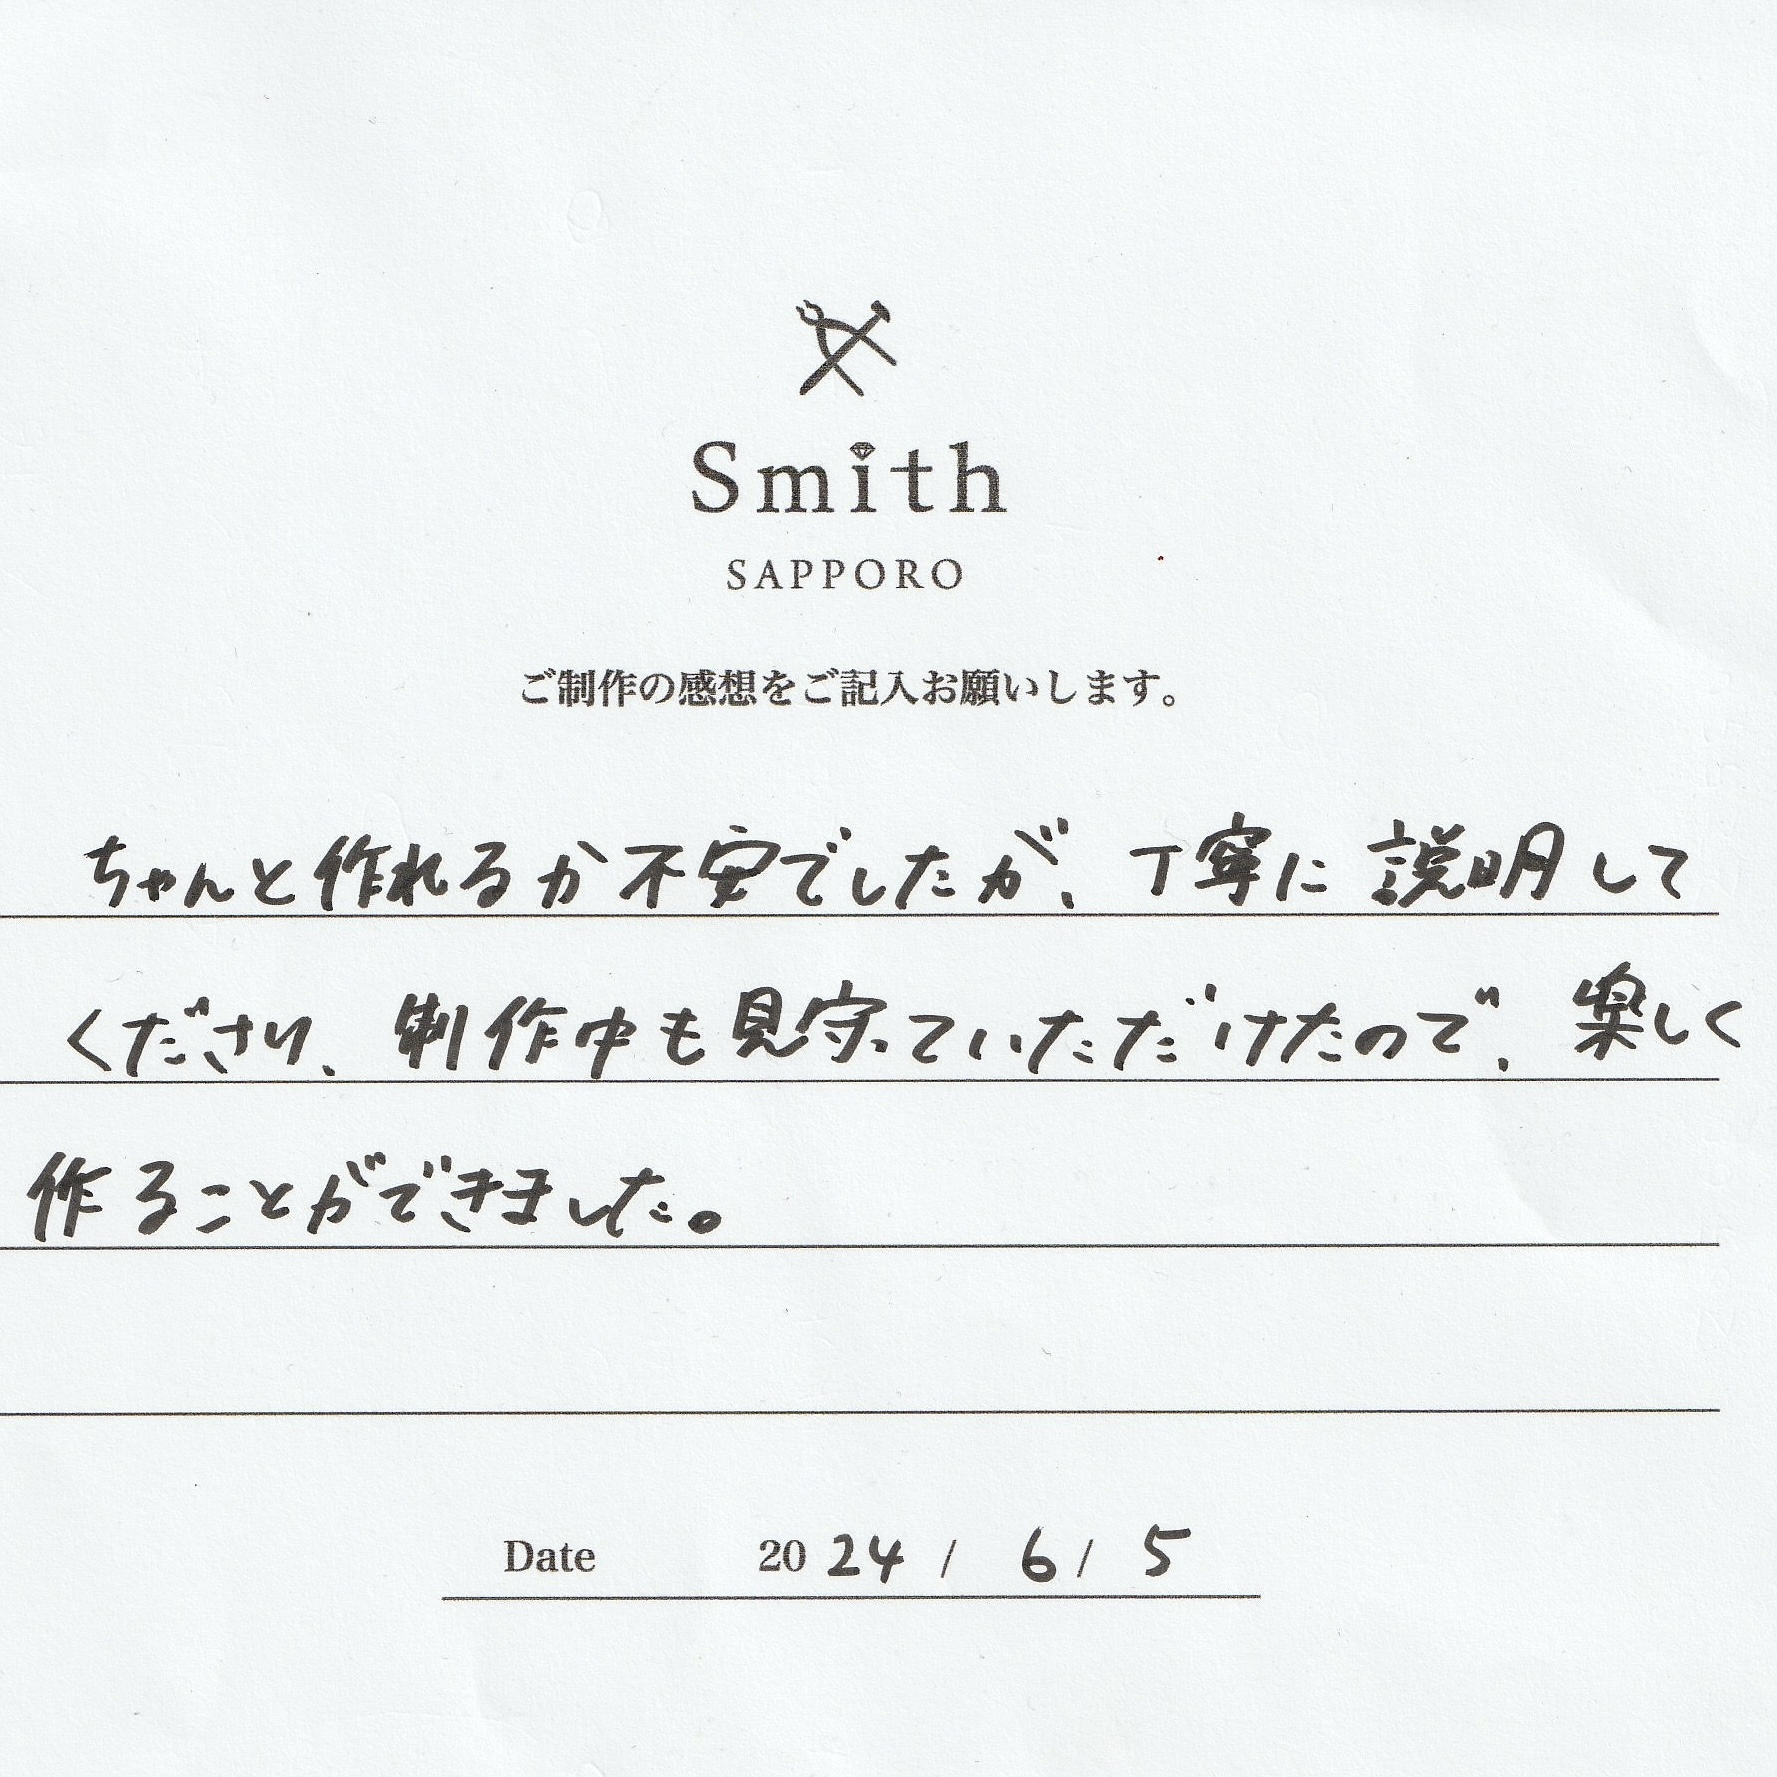 Smith
SAPPORO
ご制作の感想をご記入お願いします。
ちゃんと作れるか不安でしたが、丁寧に説明して
くださり、制作中も見守っていただけたので、楽しく
作ることができました。
Date 2024 / 6 / 5